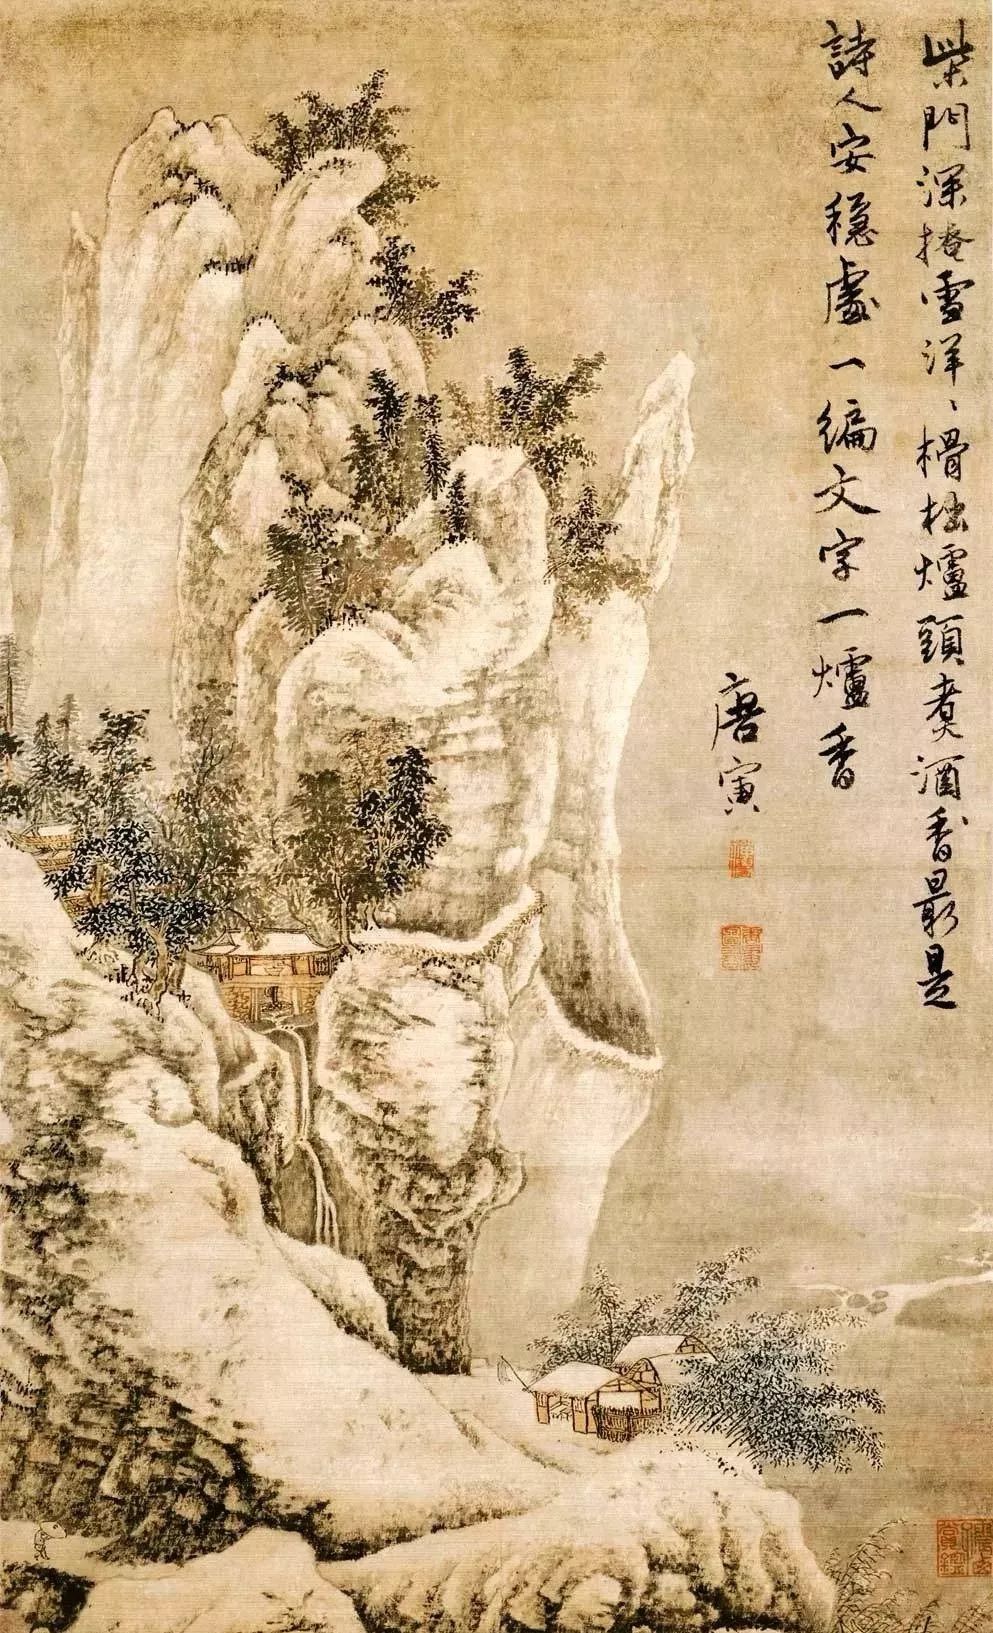 柴門深掩雪洋、榾柮爐頭煮酒香最是
詩人安穩處一編文字一爐香
唐寅